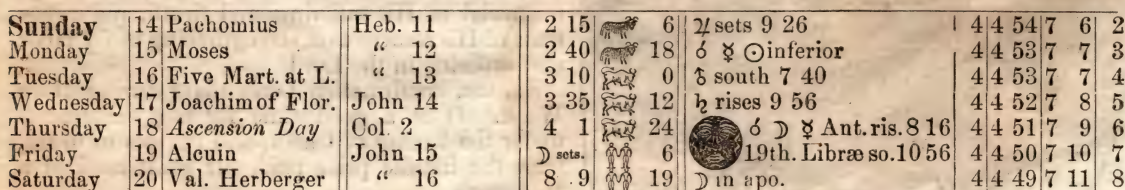 Sunday 14 Pachomius Heb. 11 2 15 6 ♃ sets 9 26 4 4 54 7 6 2
Monday 15 Moses “ 12 2 40 18 ☌ ☿ ☉ inferior 4 4 53 7 7 3
Tuesday 16 Five Mart. at L. “ 13 3 10 0 south 7 40 4 4 53 7 7 4
Wednesday 17 Joachim of Flor. John 14 3 35 12 ♄ rises 9 56 4 4 52 7 8 5
Thursday 18 Ascension Day Col. 2 4 1 24 ☌ ☽ ☿ Ant. ris. 8 16 4 4 51 7 9 6
Friday 19 Alcuin John 15 ☽ sets. 6 19th. Libræ so. 10 56 4 4 50 7 10 7
Saturday 20 Val. Herberger “ 16 8 9 19 ☽ in apo. 4 4 49 7 11 8